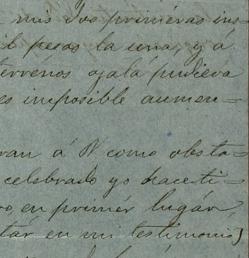 mis dos primeras ins
il pesos la una, y á
terrenos ojalá pudiera
es imposible aumen-
ran á V como obstá-
celebrado yo hace ti-
o, en primér lugar,
tar en mi testimonio)